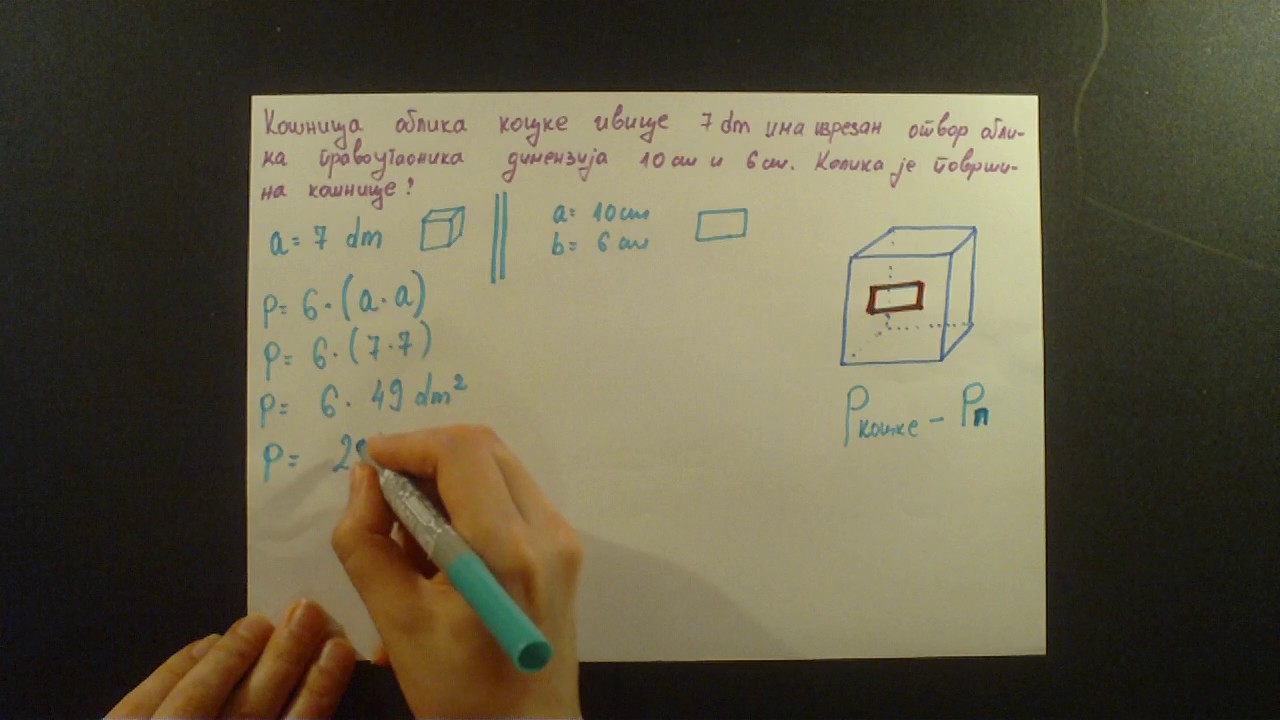 Кошница облика коцке ивице 7 dm има изрезан отвор обли-
ка правоугаоника димензија 10 cm и 6 cm. Колика је површи-
на кошнице?
a = 7 dm
a = 10 cm
b = 6 cm
P = 6 · (a · a)
P = 6 · (7 · 7)
P = 6 · 49 dm²
P = 29
Pкоцке − Pп